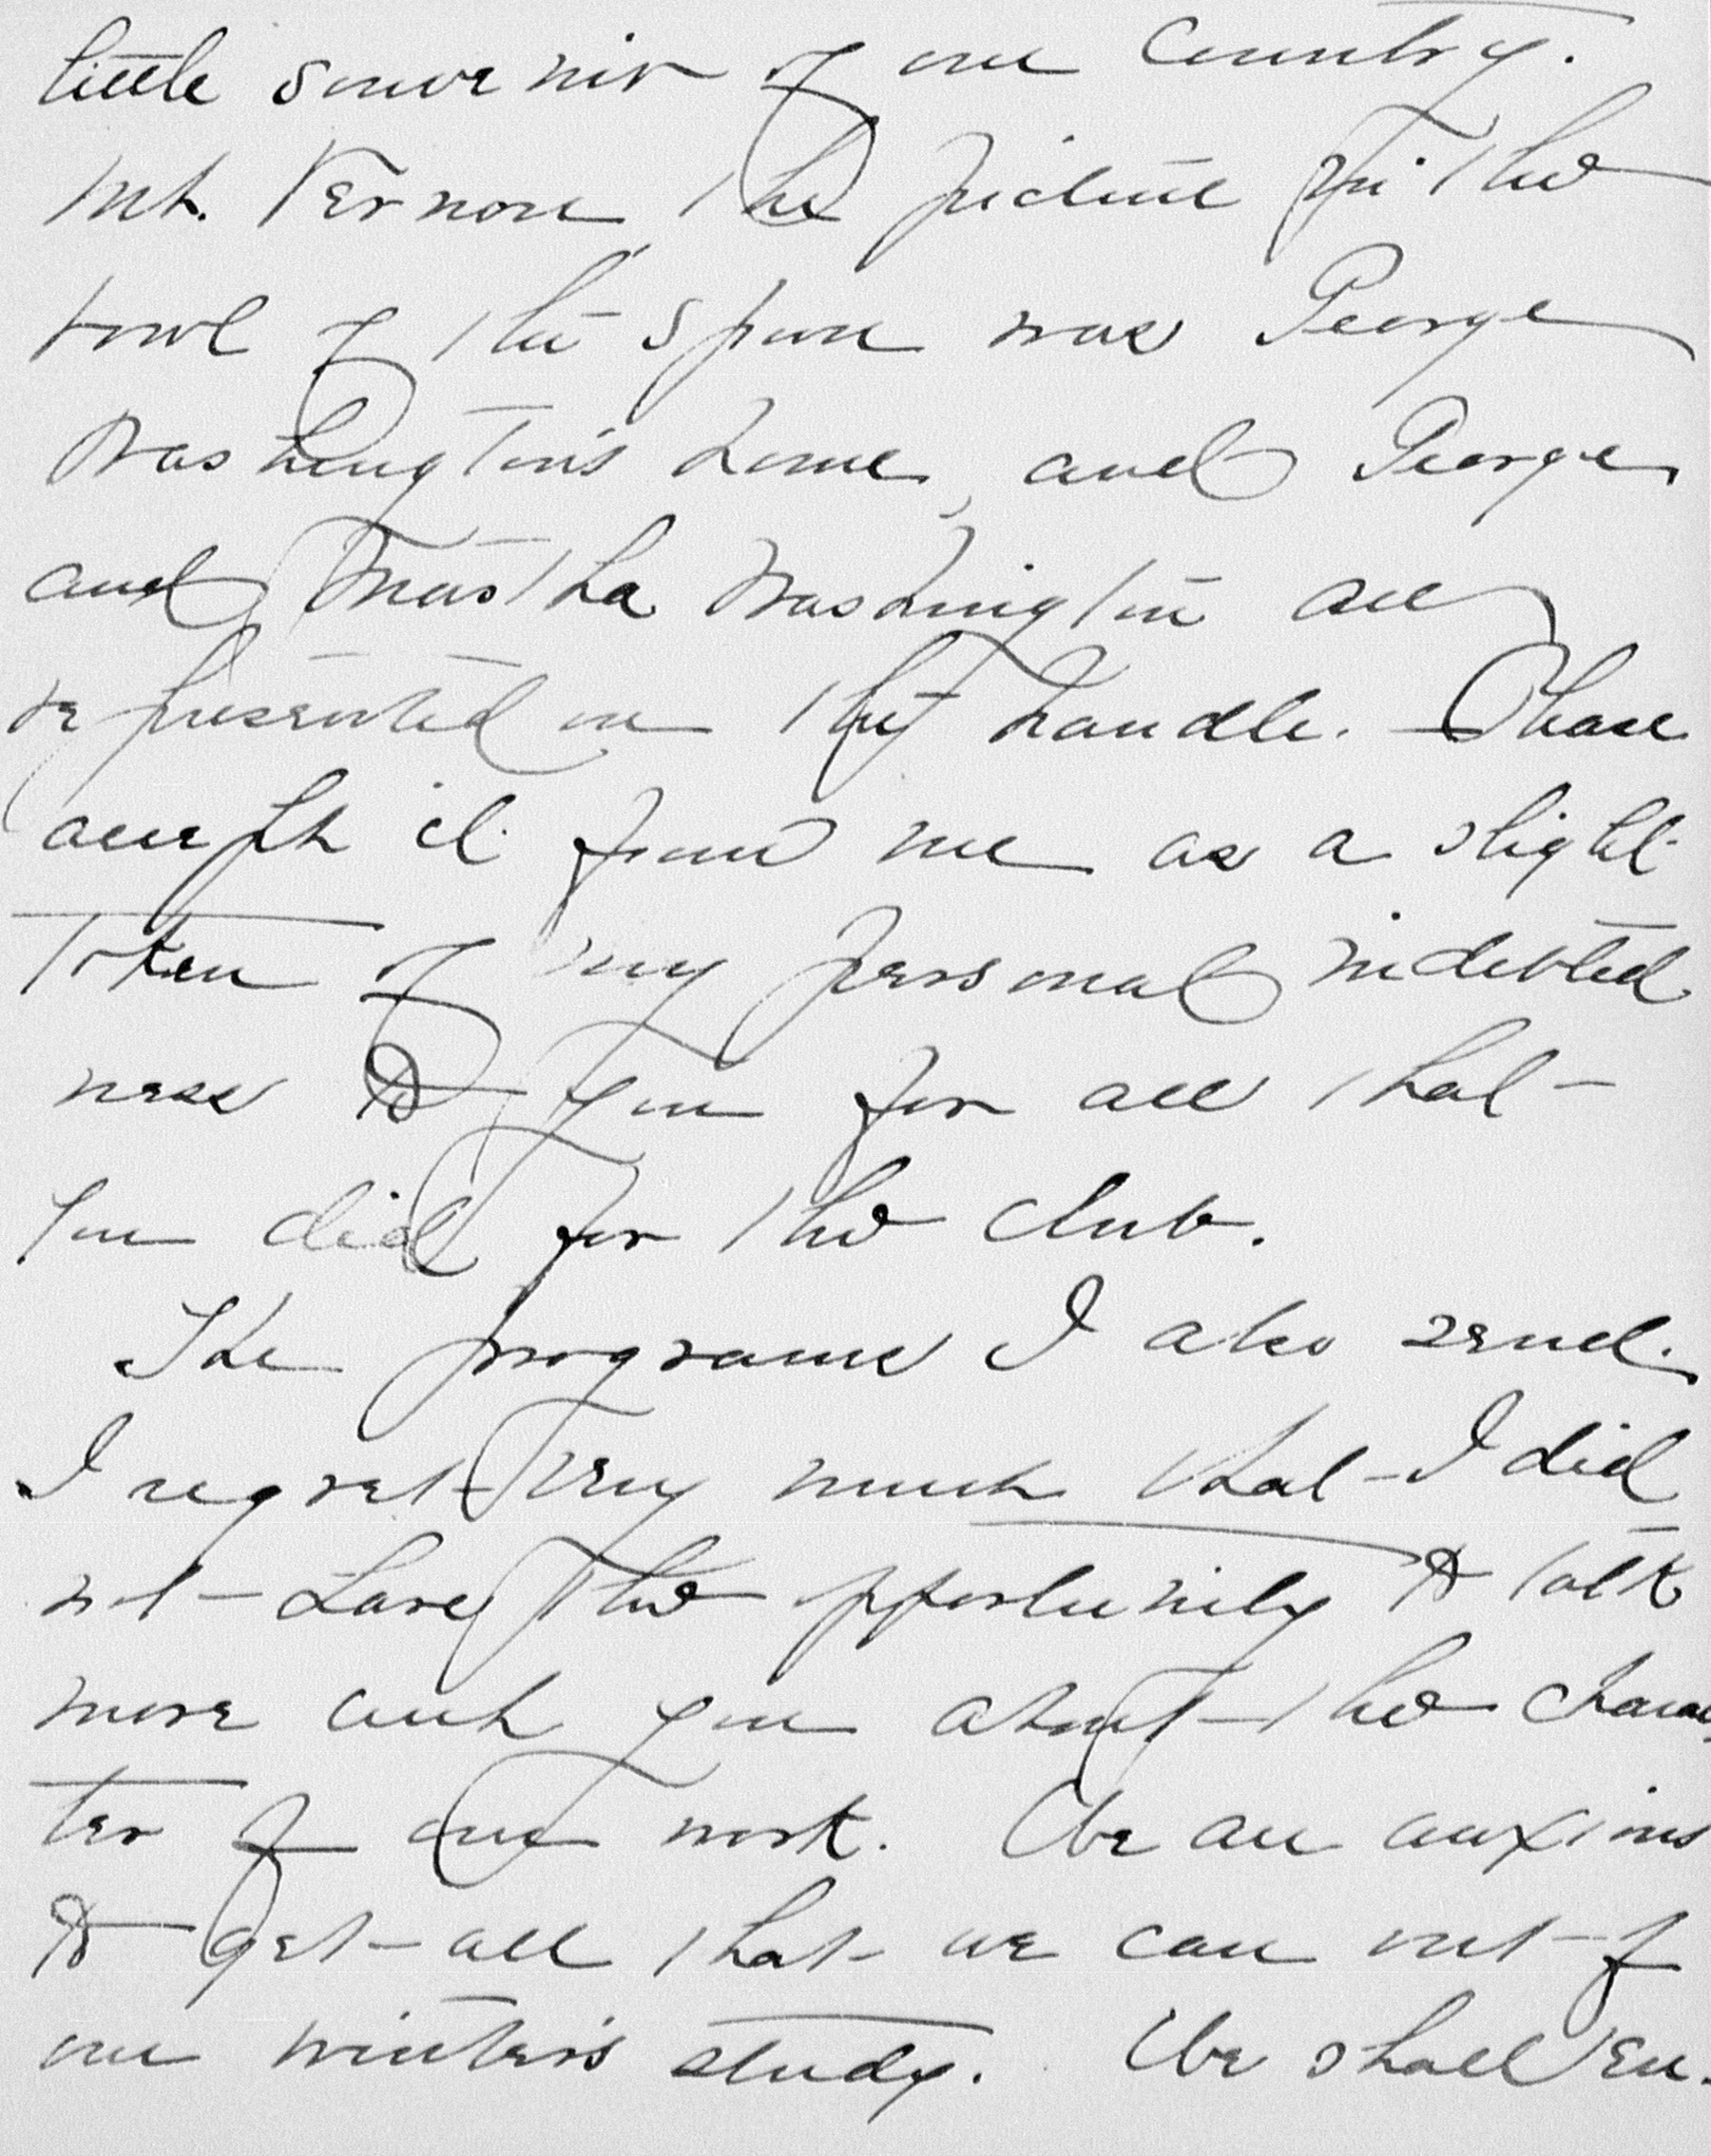 little souvenir of our Country.
Mt. Vernon, the picture in the
bowl of the spoon was George
Washington's home, and George
and Martha Washington are
represented on the handle. Please
accept it from me as a slight
token of my personal indebted
ness to you for all that
you did for the club.
The programs I also send.
I regret very much that I did
not have the opportunity to talk
more with you about the charac
ter of our work. We are anxious
to get all that we can out of
our winter's study. We shall en-